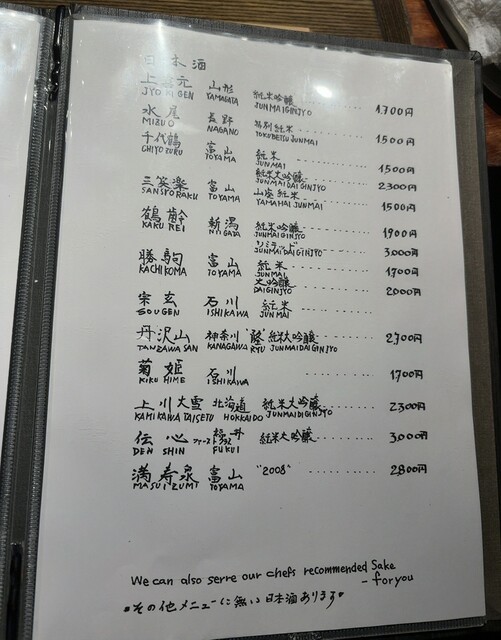 日本酒
上喜元 山形 純米吟醸 ........ 1,700円
JYOKIGEN YAMAGATA JUNMAIGINJYO
水尾 長野 特別純米 ........ 1500円
MIZUO NAGANO TOKUBETSU JUNMAI
千代鶴 富山 純米 ........ 1500円
CHIYOZURU TOYAMA JUNMAI
純米大吟醸 ........ 2300円
JUNMAIDAIGINJYO
三笑楽 富山 山廃純米 ........ 1500円
SANSYORAKU TOYAMA YAMAHAI JUNMAI
鶴齢 新潟 純米吟醸 ........ 1900円
KAKU REI NIIGATA JUNMAIGINJYO
リミテッド ........ 3,000円
JUNMAI DAIGINJYO
勝駒 富山 純米 ........ 1700円
KACHIKOMA TOYAMA JUNMAI
大吟醸 ........ 2000円
DAIGINJYO
宗玄 石川 純米
SOUGEN ISHIKAWA JUNMAI
丹沢山 神奈川 純米大吟醸 ........ 2,700円
TANZAWASAN KANAGAWA RYU JUNMAIDAIGINJYO
菊姫 石川 ........ 1700円
KIKU HIME ISHIKAWA
上川大雪 北海道 純米大吟醸 ........ 2300円
KAMIKAWA TAISETU HOKKAIDO JUNMAIDIGINJYO
伝心 福井 純米大吟醸 ........ 3,000円
DEN SHIN FUKUI
満寿泉 富山 "2008" ........ 2800円
MASUIZUMI TOYAMA
We can also serve our chefs recommended Sake
- for you
•その他メニューに無い日本酒あります•